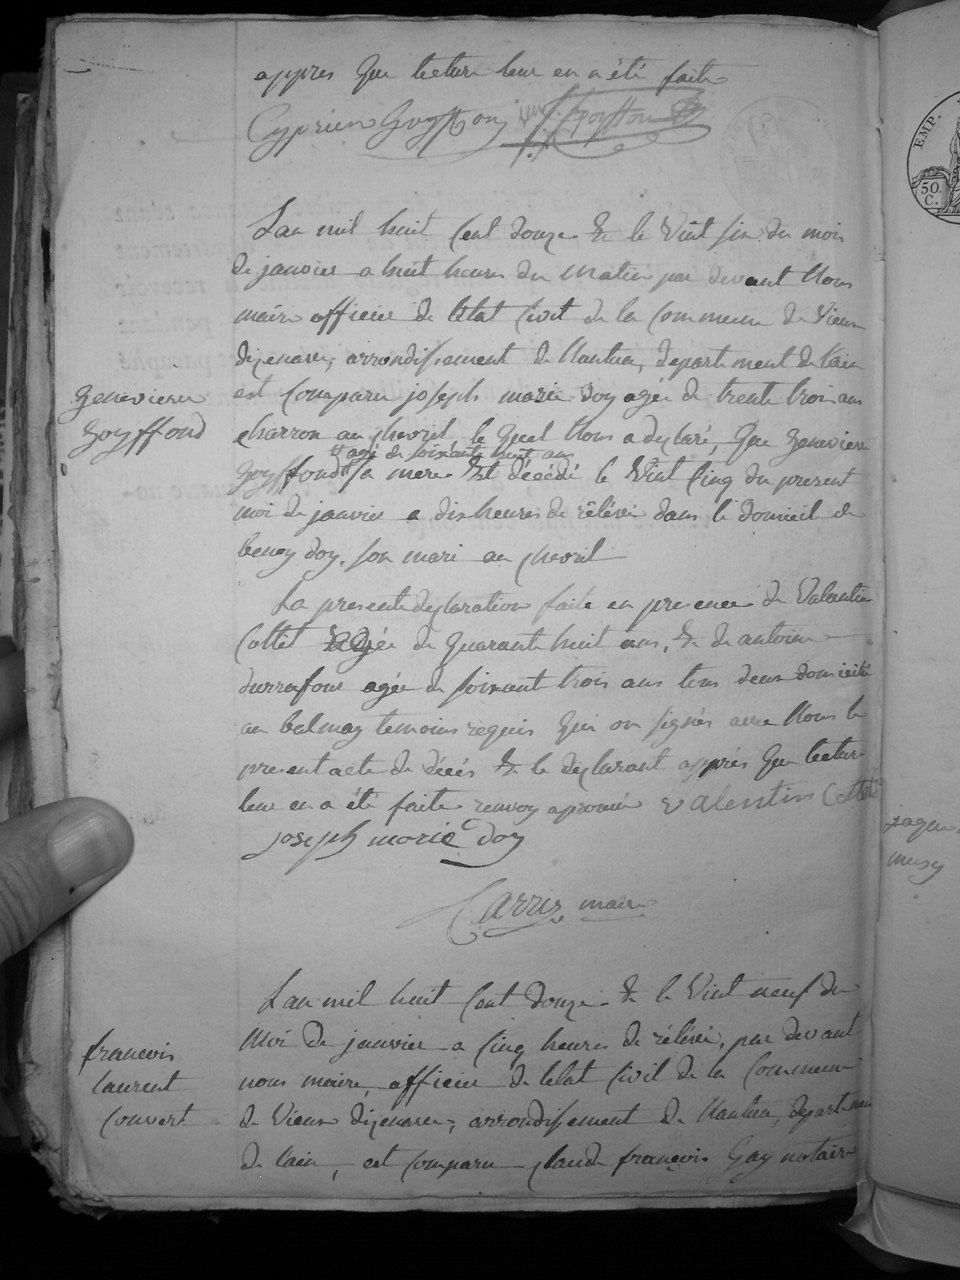 appres que lecture leur en a été faite
Cyprien Goyffon Goyffon
Lan mil huit Cent douze & le Vint sin du mois
de janvier a huit heures du matin par devant Nous
maire officier de létat Civil de la Commune de Vieux
dizenave, arrondisement de Nantua, departement de lain
est Comparu joseph marie doy agée de trente trois ans
charron au chevril, le quel Nous a dyclaré, que Genevieve
agé de soixante huit ans
goyffond sa mere Est décédé le Vint Cinq du present
moi de janvier a dix heures de rélévée dans le domicil de
benoy doy, son mari au chevril
La presente dyclaration faite en presence de Valantin
Collet agée de quarante huit ans, & de antoine
durrafour agée de soixant trois ans tous deux domicilié
au balmay temoins requis qui on signés avec Nous le
present acte de décés & le dyclarant apprés que lecture
leur en a été faite renvoy aprouvé valentin Collet
joseph marie doy
Carris maire
Genevieve
Goyffond
Lan mil huit Cent douze & le Vint neuf du
Moi de janvier a Cinq heures de rélévée, par devant
nous maire officier de létat Civil de la Commune
de Vieux dizenave, arrondisement de Nantua, departemen
de lain, est Comparu Claude françois Gay notaire
francois
laurent
Convert
EMP.
50.
C.